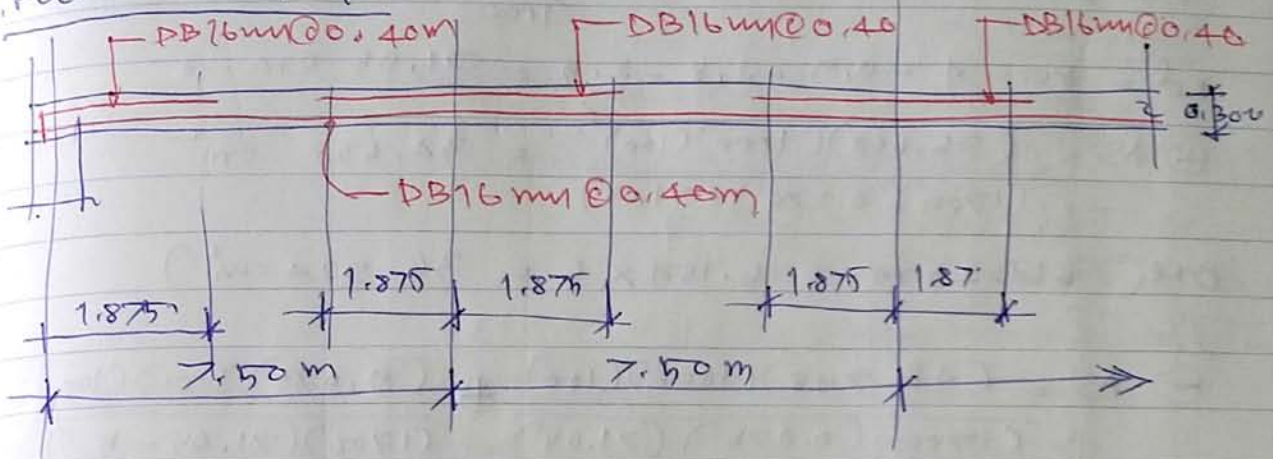 DB16mm@0.40m DB16mm@0.40 DB16mm@0.40
0.300
DB16mm@0.40m
1.875 1.875 1.875 1.875 1.87
7.50 m 7.50 m